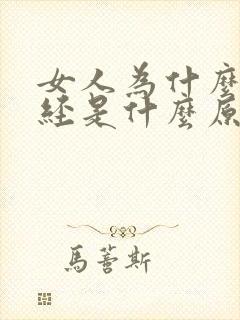 女人為什麼
経是什麼原
馬薈斯